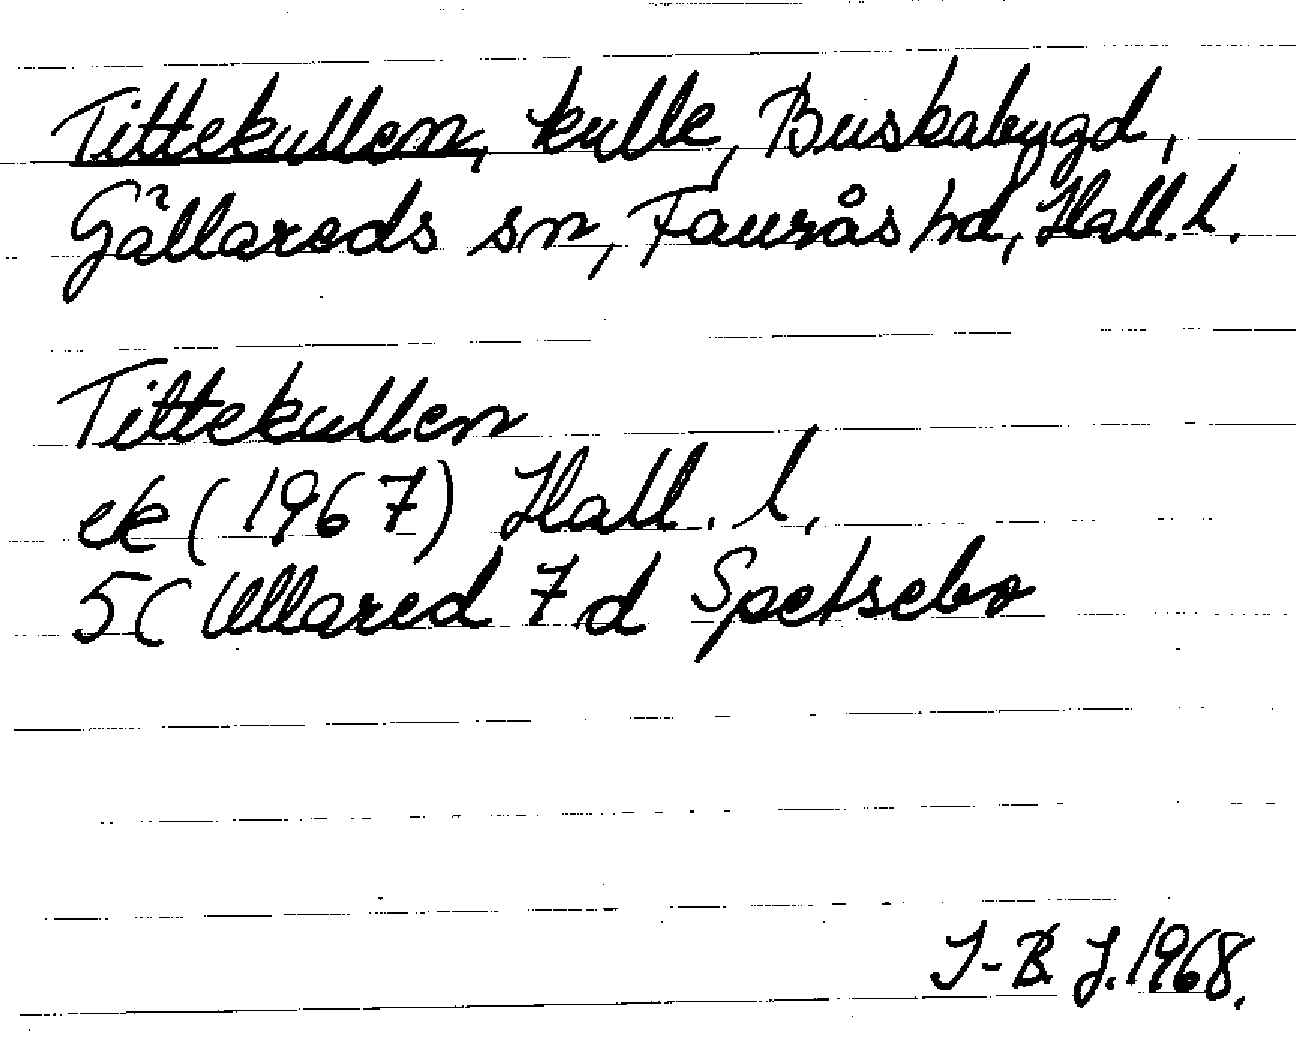 Tittekullen, kulle, Buskabygd,
Gällareds sn, Faurås hd, Hall. l.
Tittekullen
ek (1967) Hall. l.
5C Ullared 7d Spetsebo
I-B. J. 1968.